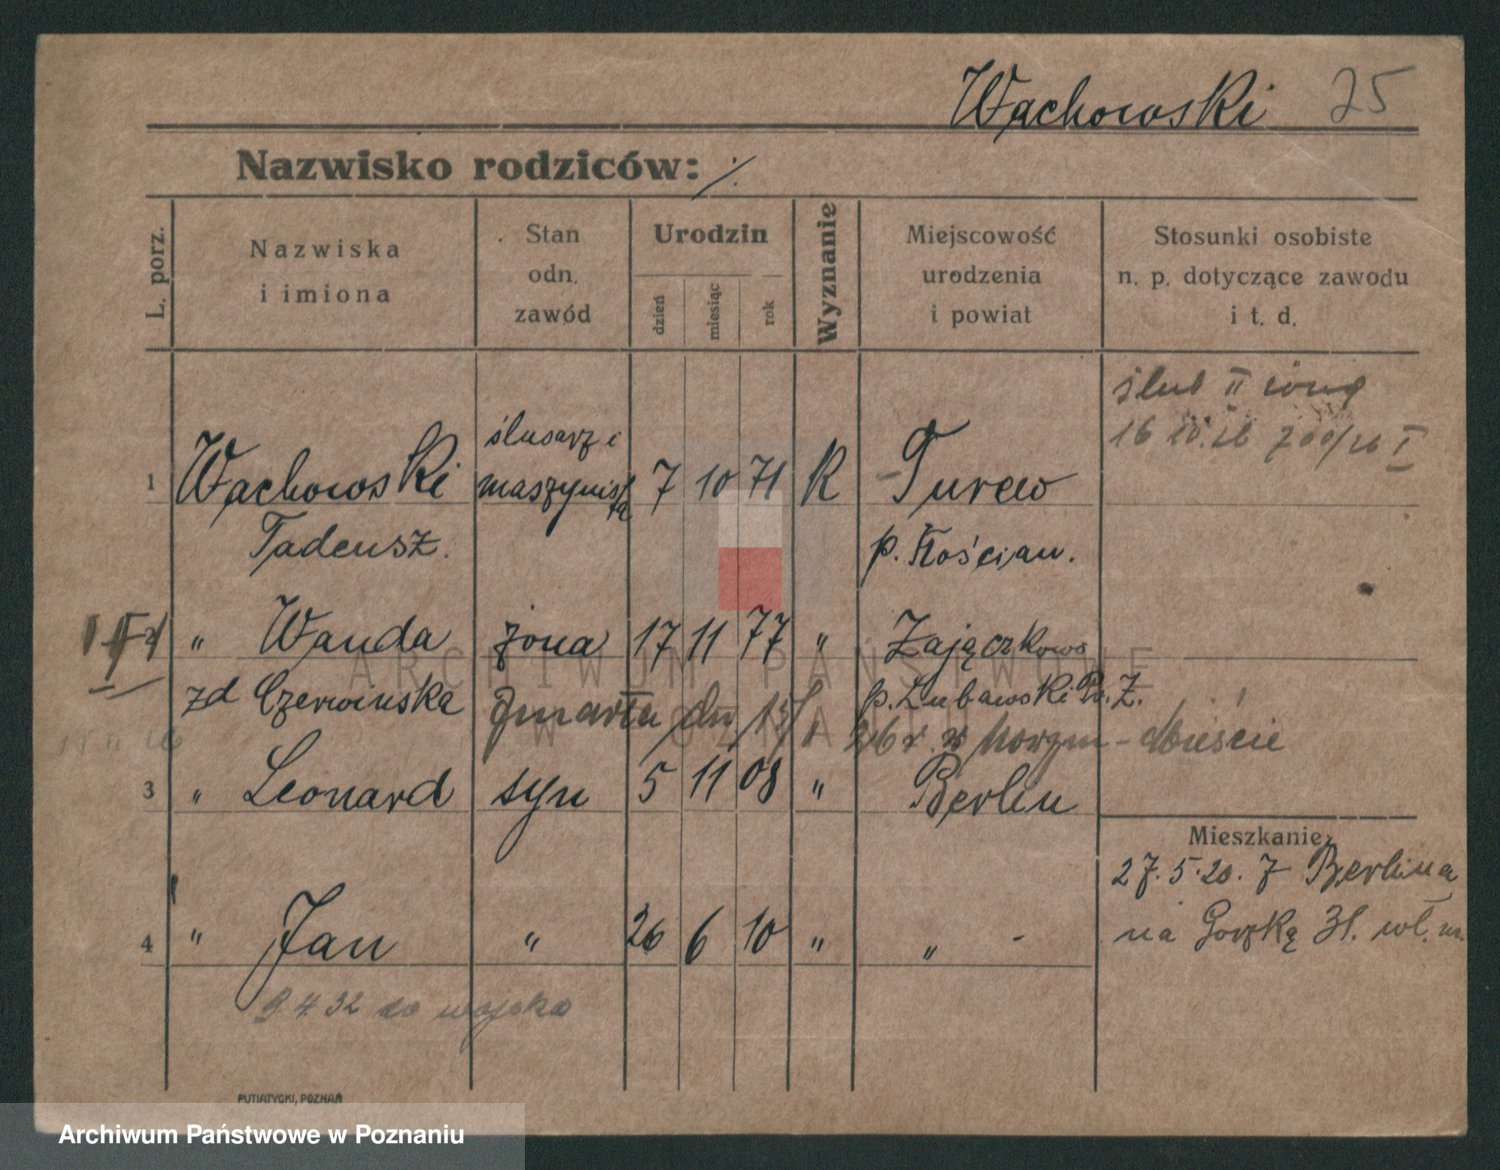 Wachowski 25
Nazwisko rodziców: ·/.
L. porz.
Nazwiska
i imiona
Stan
odn.
zawód
Urodzin
dzień
miesiąc
rok
Wyznanie
Miejscowość
urodzenia
i powiat
Stosunki osobiste
n. p. dotyczące zawodu
i t. d.
ślub II
16 700/26 I
1 Wachowski ślusarz i maszynista 7 10 71 K Turew
Tadeusz. p. Kościan.
" Wanda żona 17 11 77 " Zajączkowo
zd Czerwińska p. Lubawski
zmarła dn 26 r. w Mieście
3 " Leonard syn 5 11 08 " Berlin
Mieszkanie
27.5.20. z Berlina
na Gorzką 31.
4 " Jan " 26 6 10 " " -
9 4 32 do wojska
PUTIATYCKI, POZNAŃ
ARCHIWUM PAŃSTWOWE
W POZNANIU
Archiwum Państwowe w Poznaniu